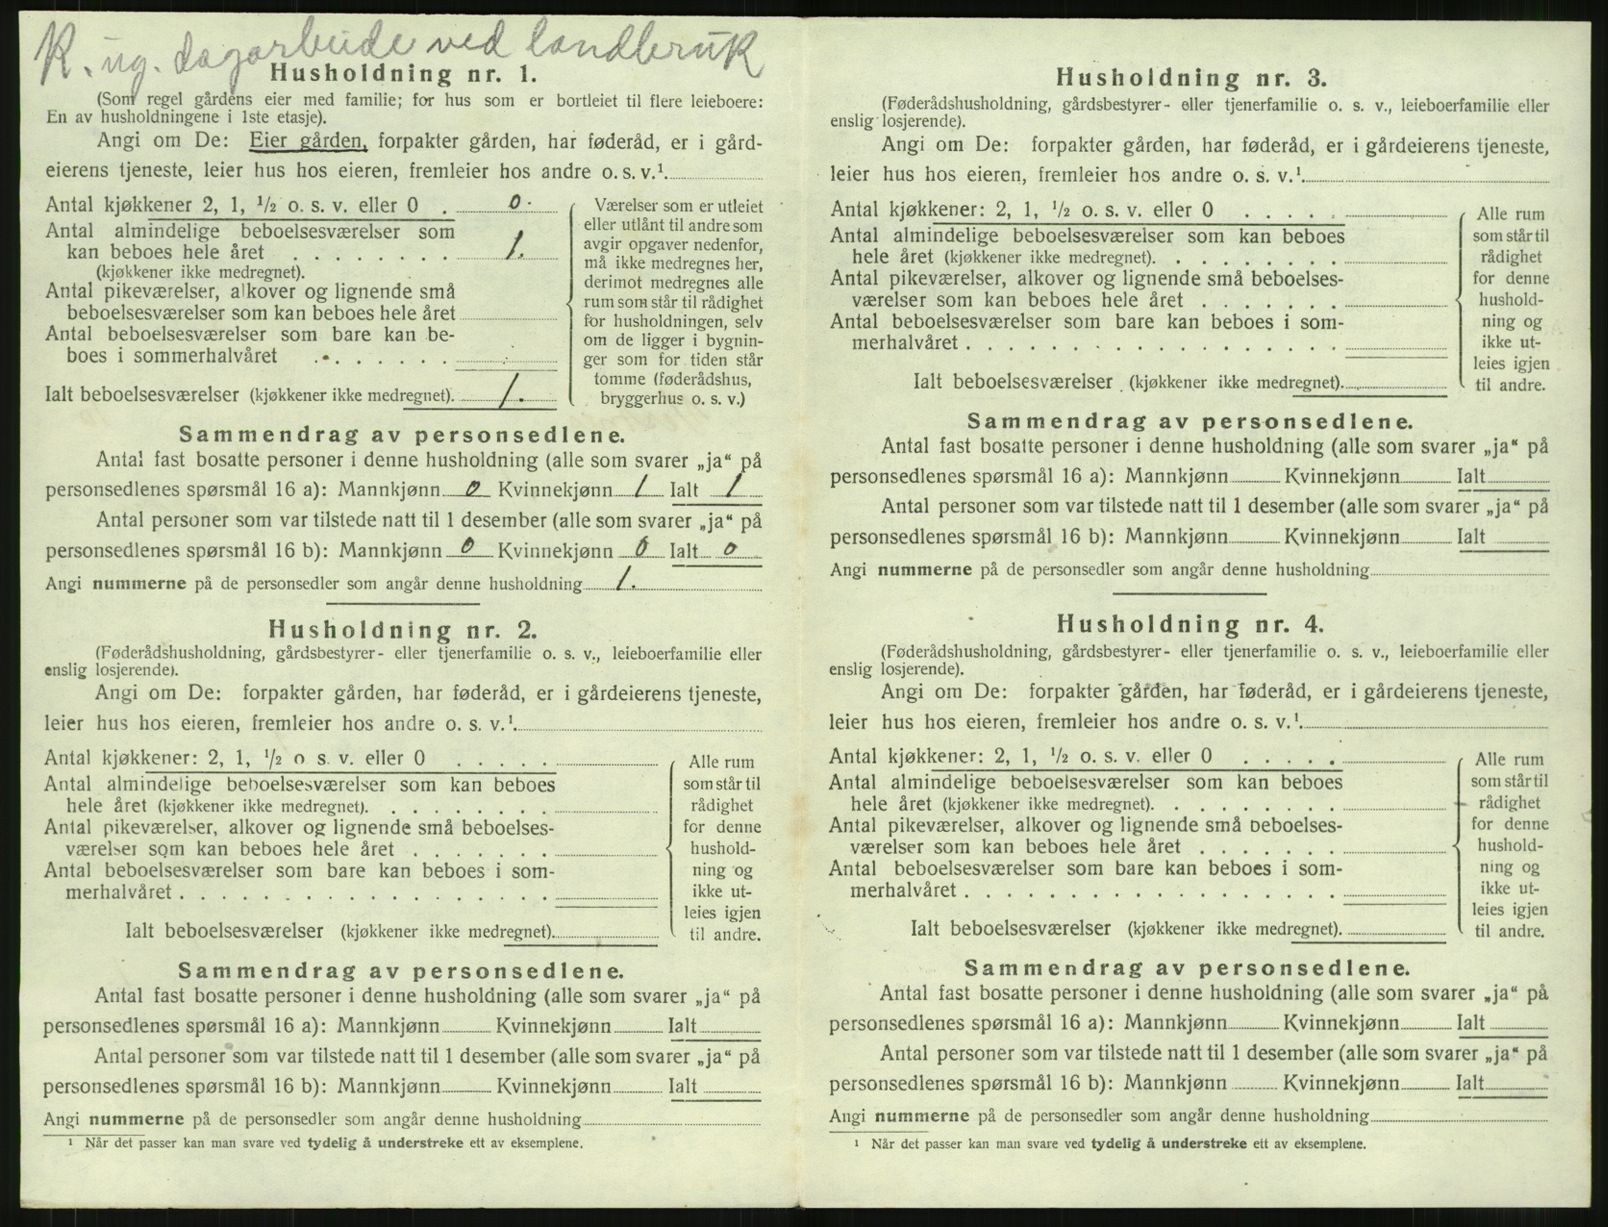 K. ug. dagarbeide ved landbruk
Husholdning nr. 1.
(Som regel gårdens eier med familie; for hus som er bortleiet til flere leieboere:
En av husholdningene i 1ste etasje).
Angi om De: Eier gården, forpakter gården, har føderåd, er i gård-
eierens tjeneste, leier hus hos eieren, fremleier hos andre o. s. v.¹
Antal kjøkkener 2, 1, ½ o. s. v. eller 0 . 0.
Antal almindelige beboelsesværelser som
kan beboes hele året . . . . . . . . 1.
(kjøkkener ikke medregnet).
Antal pikeværelser, alkover og lignende små
beboelsesværelser som kan beboes hele året
Antal beboelsesværelser som bare kan be-
boes i sommerhalvåret . . . . . . .
Ialt beboelsesværelser (kjøkkener ikke medregnet). 1.
Værelser som er utleiet
eller utlånt til andre som
avgir opgaver nedenfor,
må ikke medregnes her,
derimot medregnes alle
rum som står til rådighet
for husholdningen, selv
om de ligger i bygnin-
ger som for tiden står
tomme (føderådshus,
bryggerhus o. s. v.)
Sammendrag av personsedlene.
Antal fast bosatte personer i denne husholdning (alle som svarer „ja“ på
personsedlenes spørsmål 16 a): Mannkjønn 0 Kvinnekjønn 1 Ialt 1
Antal personer som var tilstede natt til 1 desember (alle som svarer „ja“ på
personsedlenes spørsmål 16 b): Mannkjønn 0 Kvinnekjønn 0 Ialt 0
Angi nummerne på de personsedler som angår denne husholdning 1.
Husholdning nr. 2.
(Føderådshusholdning, gårdsbestyrer- eller tjenerfamilie o. s. v., leieboerfamilie eller
enslig losjerende).
Angi om De: forpakter gården, har føderåd, er i gårdeierens tjeneste,
leier hus hos eieren, fremleier hos andre o. s. v.¹
Antal kjøkkener: 2, 1, ½ o s. v. eller 0 . . . . .
Antal almindelige beboelsesværelser som kan beboes
hele året (kjøkkener ikke medregnet). . . . . . . . .
Antal pikeværelser, alkover og lignende små beboelses-
værelser som kan beboes hele året . . . . . . .
Antal beboelsesværelser som bare kan beboes i som-
merhalvåret . . . . . . . . . . . . . . . . . .
Ialt beboelsesværelser (kjøkkener ikke medregnet).
Alle rum
som står til
rådighet
for denne
hushold-
ning og
ikke ut-
leies igjen
til andre.
Sammendrag av personsedlene.
Antal fast bosatte personer i denne husholdning (alle som svarer „ja“ på
personsedlenes spørsmål 16 a): Mannkjønn Kvinnekjønn Ialt
Antal personer som var tilstede natt til 1 desember (alle som svarer „ja“ på
personsedlenes spørsmål 16 b): Mannkjønn Kvinnekjønn Ialt
Angi nummerne på de personsedler som angår denne husholdning
¹ Når det passer kan man svare ved tydelig å understreke ett av eksemplene.
Husholdning nr. 3.
(Føderådshusholdning, gårdsbestyrer- eller tjenerfamilie o. s. v., leieboerfamilie eller
enslig losjerende).
Angi om De: forpakter gården, har føderåd, er i gårdeierens tjeneste,
leier hus hos eieren, fremleier hos andre o. s. v.¹
Antal kjøkkener: 2, 1, ½ o. s. v. eller 0 . . . . .
Antal almindelige beboelsesværelser som kan beboes
hele året (kjøkkener ikke medregnet). . . . . . . . .
Antal pikeværelser, alkover og lignende små beboelses-
værelser som kan beboes hele året . . . . . . .
Antal beboelsesværelser som bare kan beboes i som-
merhalvåret . . . . . . . . . . . . . . . . . .
Ialt beboelsesværelser (kjøkkener ikke medregnet).
Alle rum
som står til
rådighet
for denne
hushold-
ning og
ikke ut-
leies igjen
til andre.
Sammendrag av personsedlene.
Antal fast bosatte personer i denne husholdning (alle som svarer „ja“ på
personsedlenes spørsmål 16 a): Mannkjønn Kvinnekjønn Ialt
Antal personer som var tilstede natt til 1 desember (alle som svarer „ja“ på
personsedlenes spørsmål 16 b): Mannkjønn Kvinnekjønn Ialt
Angi nummerne på de personsedler som angår denne husholdning
Husholdning nr. 4.
(Føderådshusholdning, gårdsbestyrer- eller tjenerfamilie o. s. v., leieboerfamilie eller
enslig losjerende).
Angi om De: forpakter gården, har føderåd, er i gårdeierens tjeneste,
leier hus hos eieren, fremleier hos andre o. s. v.¹
Antal kjøkkener: 2, 1, ½ o. s. v. eller 0 . . . . .
Antal almindelige beboelsesværelser som kan beboes
hele året (kjøkkener ikke medregnet). . . . . . . . .
Antal pikeværelser, alkover og lignende små beboelses-
værelser som kan beboes hele året . . . . . . .
Antal beboelsesværelser som bare kan beboes i som-
merhalvåret . . . . . . . . . . . . . . . . . .
Ialt beboelsesværelser (kjøkkener ikke medregnet).
Alle rum
som står til
rådighet
for denne
hushold-
ning og
ikke ut-
leies igjen
til andre.
Sammendrag av personsedlene.
Antal fast bosatte personer i denne husholdning (alle som svarer „ja“ på
personsedlenes spørsmål 16 a): Mannkjønn Kvinnekjønn Ialt
Antal personer som var tilstede natt til 1 desember (alle som svarer „ja“ på
personsedlenes spørsmål 16 b): Mannkjønn Kvinnekjønn Ialt
Angi nummerne på de personsedler som angår denne husholdning
¹ Når det passer kan man svare ved tydelig å understreke ett av eksemplene.